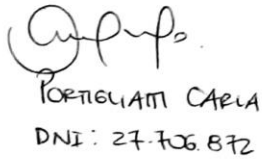 PORTIGLIATTI CARLA
DNI: 27.706.872